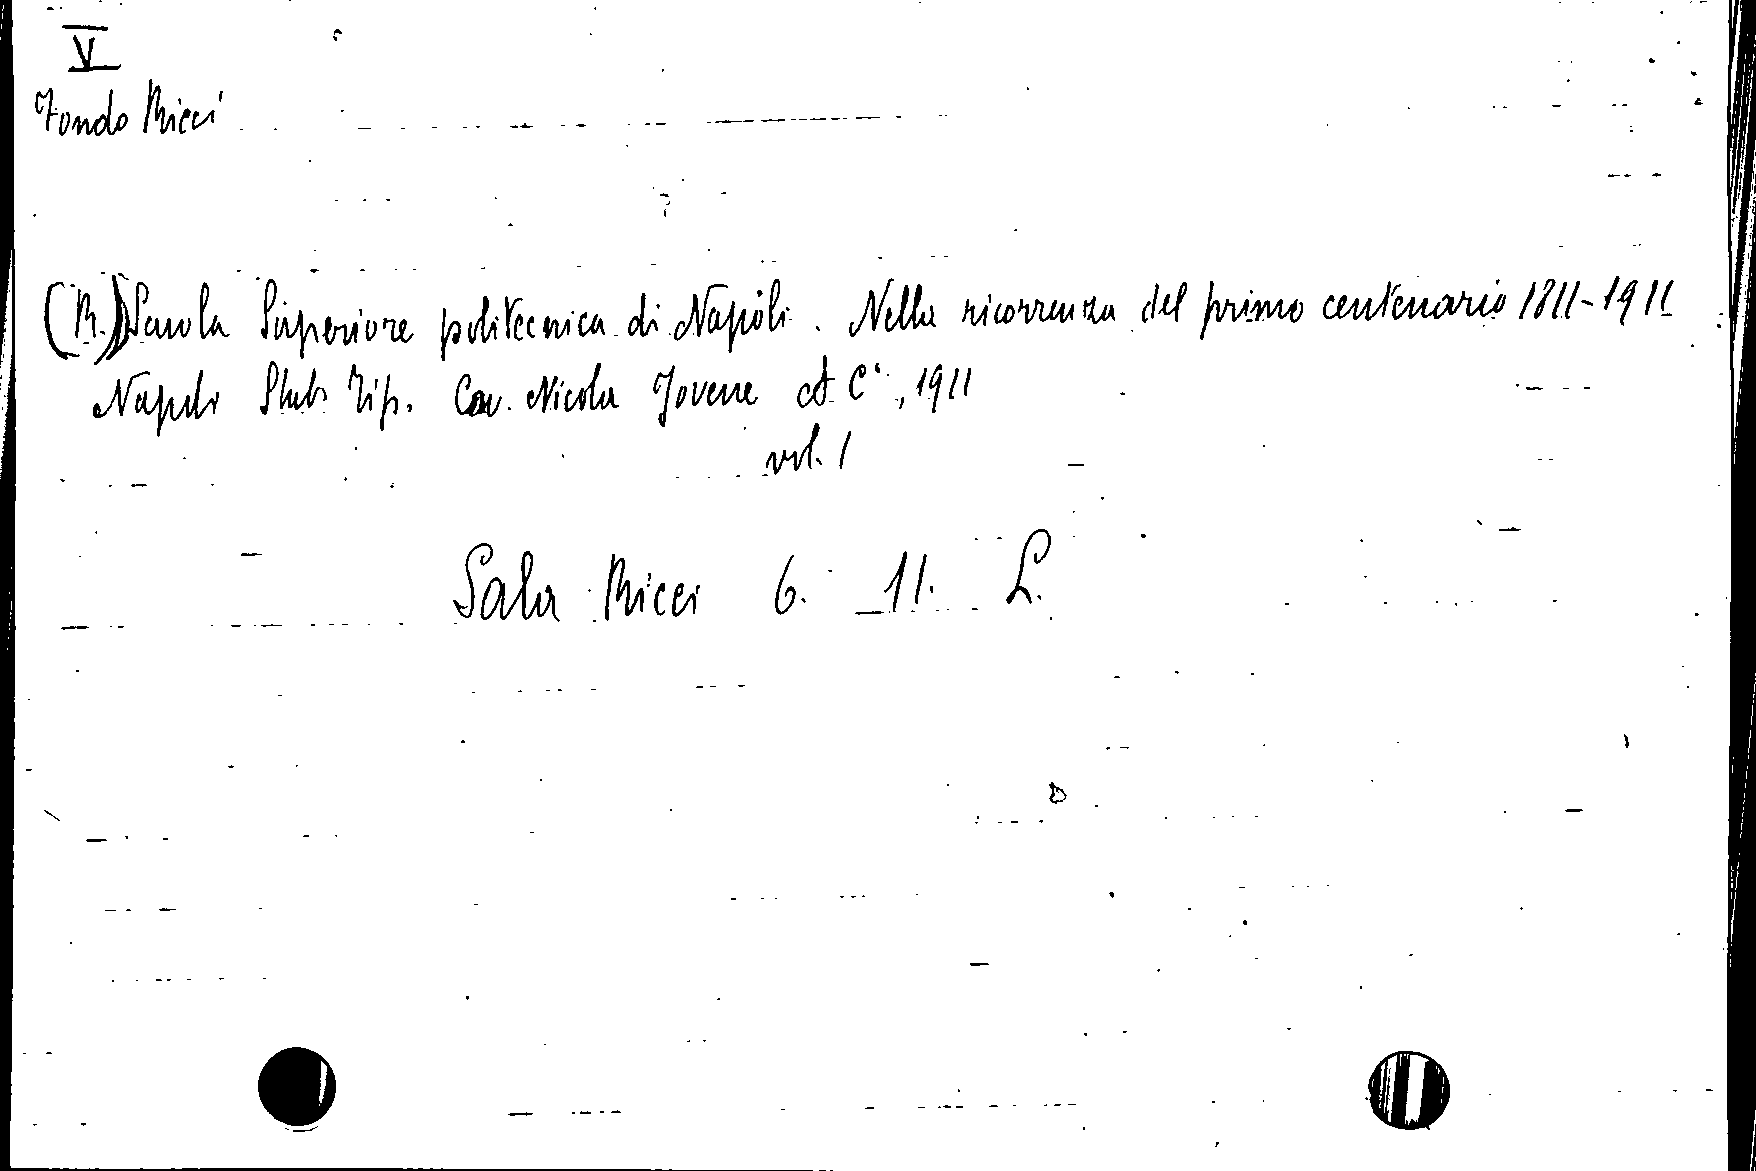 V
Fondo Ricci
(R.) Scuola Superiore politecnica di Napoli. Nella ricorrenza del primo centenario 1811-1911
Napoli Stab. Tip. Cav. Nicola Jovene et C°, 1911
vol. 1
Sala Ricci 6. 11. L.